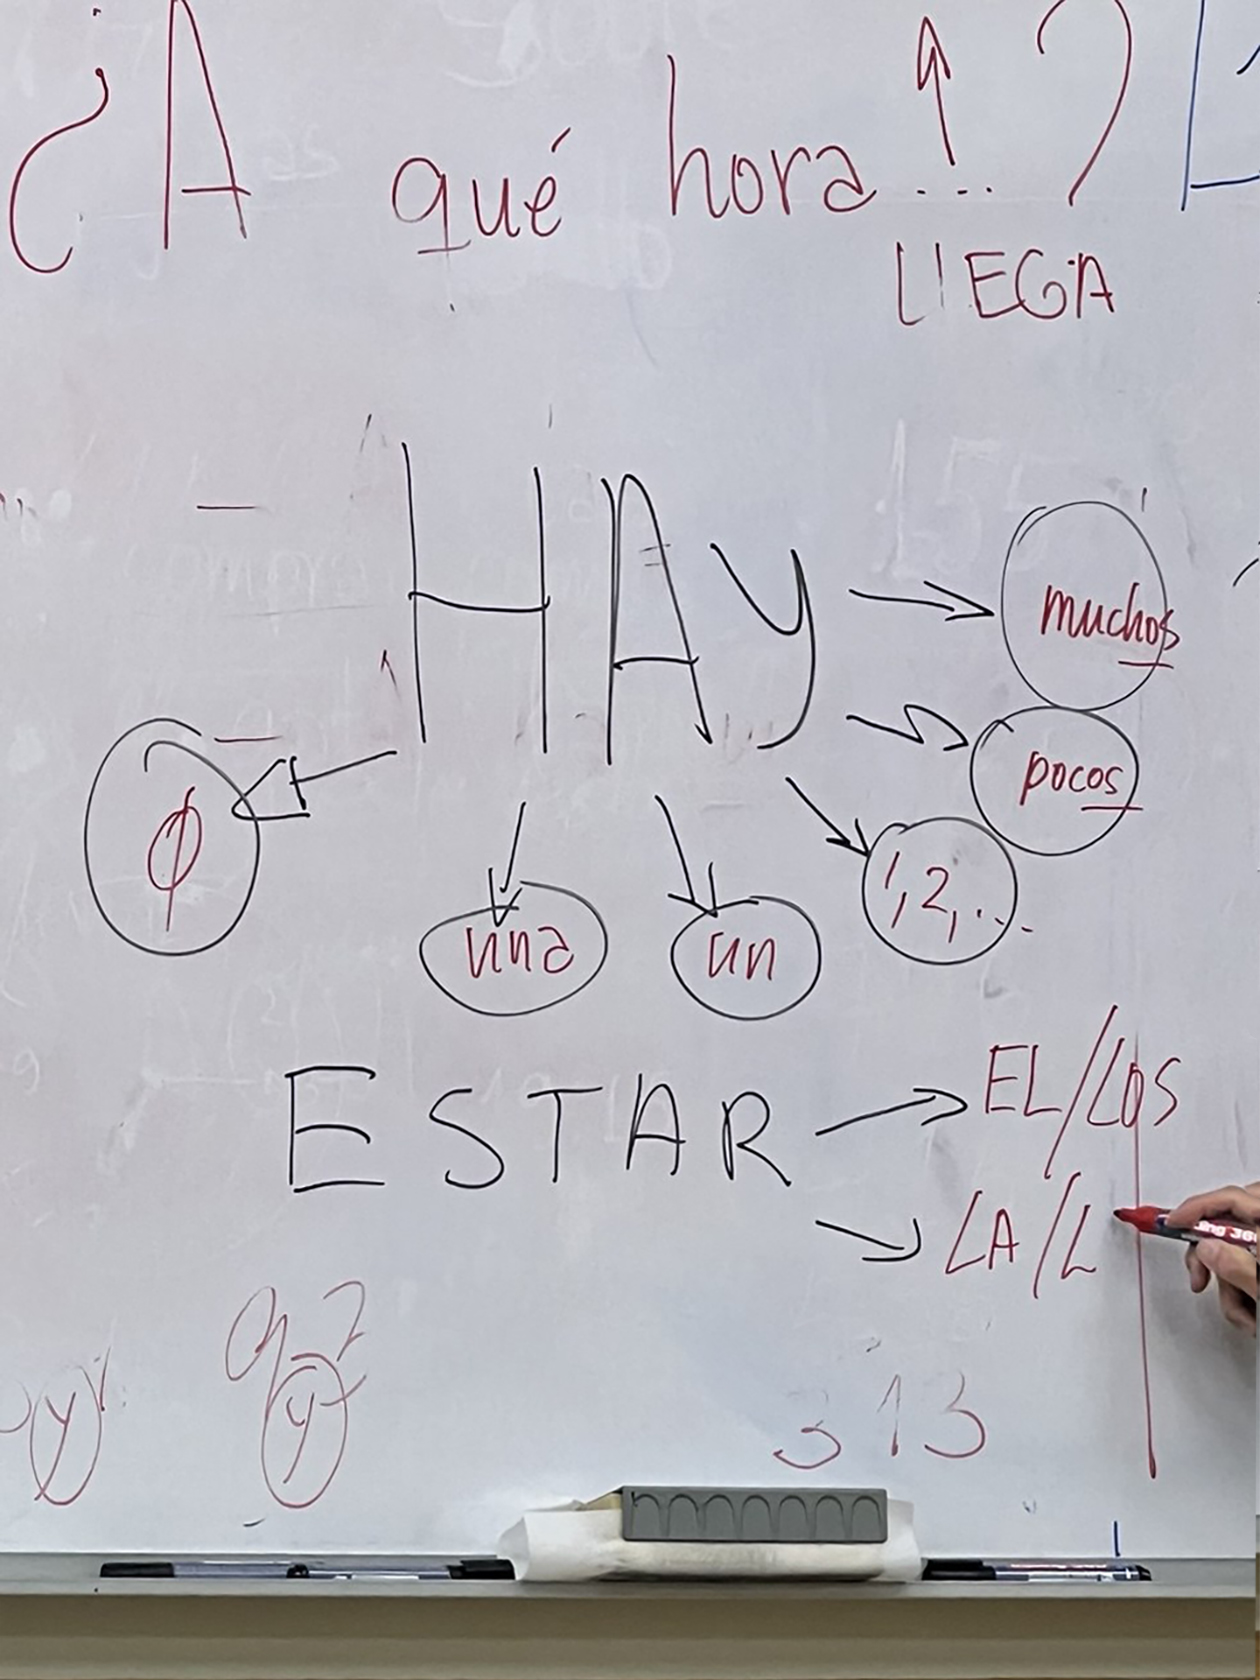 ¿A qué hora ... ?
LLEGA
HAY
muchos
pocos
Ø
una
un
1, 2, ...
ESTAR
EL/LOS
LA/L
y
y
313